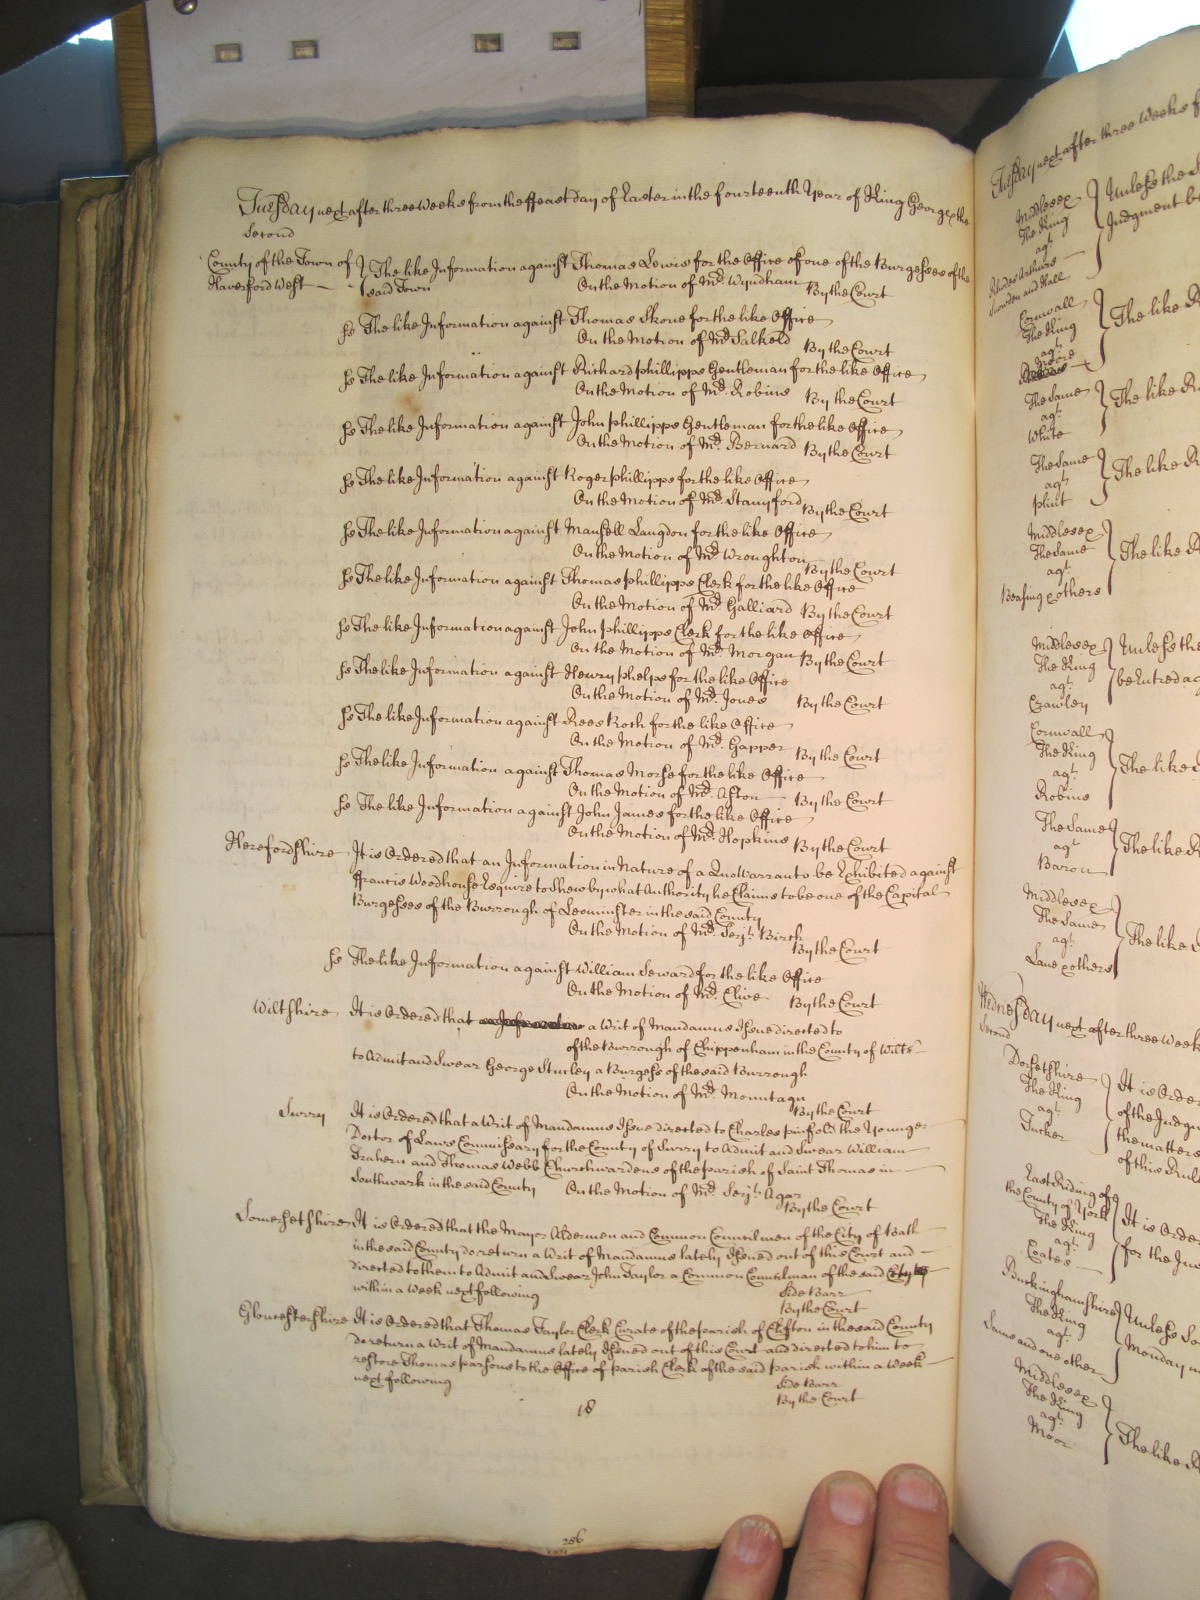 Tuesday next after three Weeks from the ffeast day of Easter in the fourteenth Year of King George the
Second
County of the Town of
Haverford West
The like Information against Thomas Lewis for the Office of one of the Burgesses of the
said Town
On the Motion of Mr. Wyndham By the Court
ss The like Information against Thomas Skone for the like Office
On the Motion of Mr Salkeld By the Court
ss The like Information against Richard phillipps Gentleman for the like Office
On the Motion of Mr. Robins By the Court
ss The like Information against John phillipps Gentleman for the like Office
On the Motion of Mr. Bernard By the Court
ss The like Information against Roger phillipps for the like Office
On the Motion of Mr. Stanyford By the Court
ss The like Information against Mansell Langdon for the like Office
On the Motion of Mr Wroughton By the Court
ss The like Information against Thomas phillipps Clerk for the like Office
On the Motion of Mr. Galliard By the Court
ss The like Information against John phillipps Clerk for the like Office
On the Motion of Mr. Morgan By the Court
ss The like Information against Henry phelps for the like Office
On the Motion of Mr. Jones By the Court
ss The like Information against Rees Roch for the like Office
On the Motion of Mr. Gapper By the Court
ss The like Information against Thomas Morse for the like Office
On the Motion of Mr. Aston By the Court
ss The like Information against John James for the like Office
On the Motion of Mr. Hopkins By the Court
Herefordshire It is Ordered that an Information in Nature of a Quo Warranto be Exhibited against
ffrancis Woodhouse Esquire to Shew by what Authority he Claims to be one of the Capital
Burgesses of the Burrough of Leominster in the said County
On the Motion of Mr. Serjt. Birch
By the Court
ss The like Information against William Seward for the like Office
On the Motion of Mr. Clive By the Court
Wiltshire It is Ordered that a Writ of Mandamus Issue directed to
of the Burrough of Chippenham in the County of Wilts
to Admit and Swear George Stutley a Burgess of the said Burrough
On the Motion of Mr. Mountagu
By the Court
Surry It is Ordered that a Writ of Mandamus Issue directed to Charles pinfold the Younger
Doctor of Laws Commissary for the County of Surry to Admit and Swear William
Grahem and Thomas Webb Churchwardens of the parish of Saint Thomas in
Southwark in the said County On the Motion of Mr. Serjt. Agar
By the Court
Somersetshire It is Ordered that the Mayor Aldermen and Common Councilmen of the City of Bath
in the said County do return a Writ of Mandamus lately Issued out of this Court and
directed to them to Admit and Swear John Taylor a Common Councilman of the said City
within a Week next following Side Barr
By the Court
Gloucestershire It is Ordered that Thomas Taylor Clerk Curate of the parish of Clifton in the said County
do return a Writ of Mandamus lately Issued out of this Court and directed to him to
restore Thomas parsons to the Office of parish Clerk of the said parish within a Week
next following Side Barr
By the Court
18
286
Tuesday next after three Weeks
Middlesex
The King
agt.
Snowdon and Hall
Unless the
Judgment be
Cornwall
The King
agt.
Moore
The like
The Same
agt.
White
The like
The Same
agt.
plint
The like
Middlesex
The Same
agt.
others
The like
Middlesex
The King
agt.
Crawley
Unless the
be Entred ag
Cornwall
The King
agt.
Robins
The like
The Same
agt.
Baron
The like
Middlesex
The Same
agt.
Lane others
The like
Wednesday next after three Week
Second
Dorsetshire
The King
agt.
Tucker
It is Ordere
of the Judgm
the matters
of this Rule
East Riding of
the County of York
The King
agt.
Coates
It is Ord
for the Ju
Buckinghamshire
The King
agt.
Lams and one other
Unless
Monday
Middlesex
The King
agt.
Moor
The like